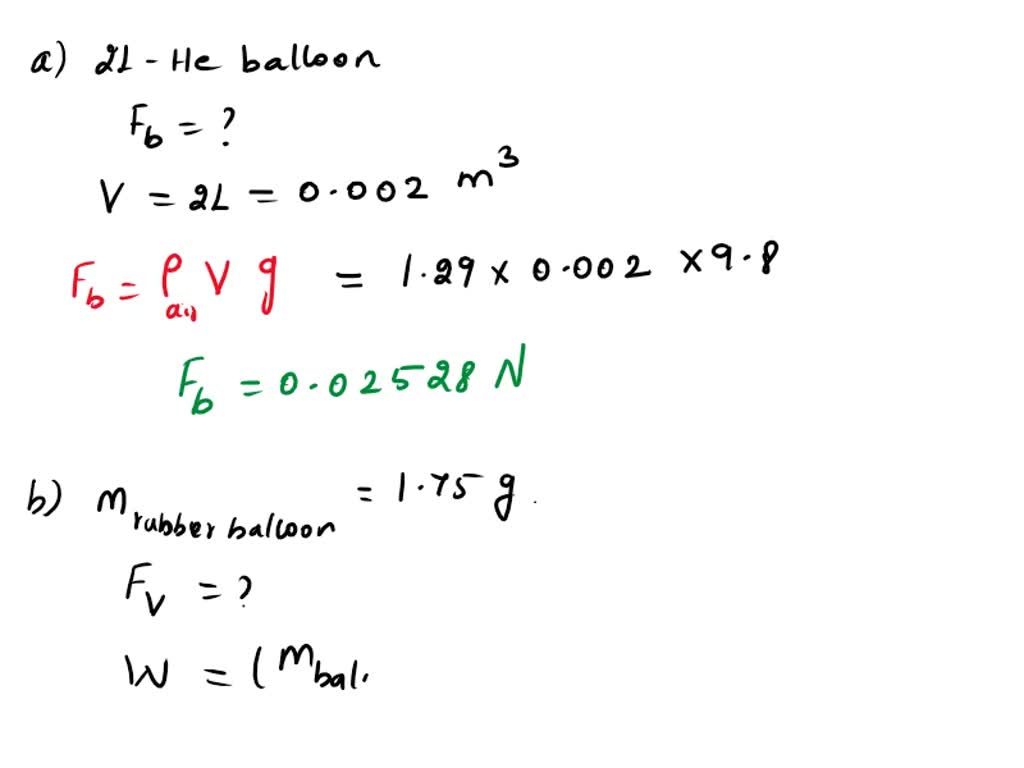 a) 2L - He balloon
F_b = ?
V = 2L = 0.002 m³
F_b = ρ_air V g = 1.29 × 0.002 × 9.8
F_b = 0.02528 N
b) m_rubber balloon = 1.75 g.
F_V = ?
W = (m_bal.